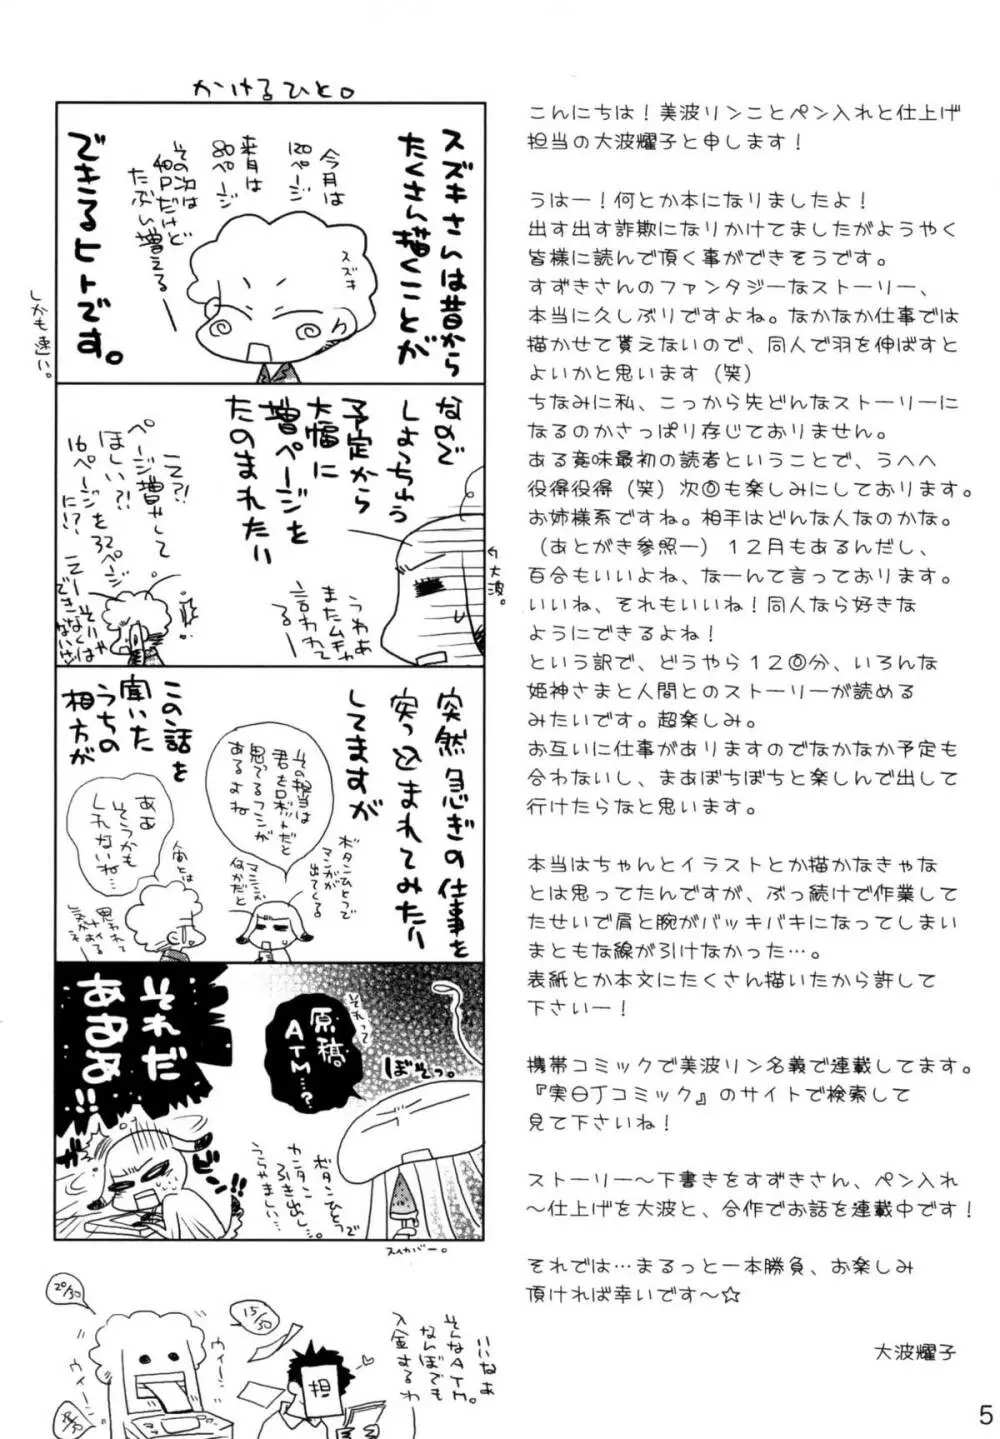 かけるひと。
スズキさんは昔から
たくさん描くことが
できるヒトです。
しかも速い。
今月は
120ページ
来月は
80ページ
その次は
40Pだけど
たぶん増える
スズキ
なので
しょっちゅう
予定から
大幅に
増ページを
たのまれたり
うわあ
またムチャ
言われて
る
大波。
えっ?!
ページ増やして
ほしい?!
16ページを32ページ
に!?
突然急ぎの仕事を
突っ込まれてみたり
してますが
この話を
聞いた
うちの
相方が
その担当は
君をロボットだと
思ってるフシが
あるよね
ボタンひとつで
マンガが
出てくる
マシンか
何かだと
ああ
そうかも
しれないね…
それって
原稿
ATM…?
ぼそっ。
それだ
あああ
!!
ガッ
ビーン!!
ボタンひとつで
カンタン
引き出し…。
うらやましい…
スイカバー。
20/30
15/30
ウィーン
ウィーン
担
いいなぁ
そんなATM。
なんぼでも
入金するわ
こんにちは！美波リンことペン入れと仕上げ
担当の大波耀子と申します！
うはー！何とか本になりましたよ！
出す出す詐欺になりかけてましたがようやく
皆様に読んで頂く事ができそうです。
すずきさんのファンタジーなストーリー、
本当に久しぶりですよね。なかなか仕事では
描かせて貰えないので、同人で羽を伸ばすと
よいかと思います（笑）
ちなみに私、こっから先どんなストーリーに
なるのかさっぱり存じておりません。
ある意味最初の読者ということで、うへへ
役得役得（笑）次回も楽しみにしております。
お姉様系ですね。相手はどんな人なのかな。
（あとがき参照ー）１２月もあるんだし、
百合もいいよね、なーんて言っております。
いいね、それもいいね！同人なら好きな
ようにできるよね！
という訳で、どうやら１２回分、いろんな
姫神さまと人間とのストーリーが読める
みたいです。超楽しみ。
お互いに仕事がありますのでなかなか予定も
合わないし、まあぼちぼちと楽しんで出して
行けたらなと思います。
本当はちゃんとイラストとか描かなきゃな
とは思ってたんですが、ぶっ続けで作業して
たせいで肩と腕がバッキバキになってしまい
まともな線が引けなかった…。
表紙とか本文にたくさん描いたから許して
下さいー！
携帯コミックで美波リン名義で連載してます。
『実日Jコミック』のサイトで検索して
見て下さいね！
ストーリー～下書きをすずきさん、ペン入れ
～仕上げを大波と、合作でお話を連載中です！
それでは…まるっと一本勝負、お楽しみ
頂ければ幸いです～☆
大波耀子
5